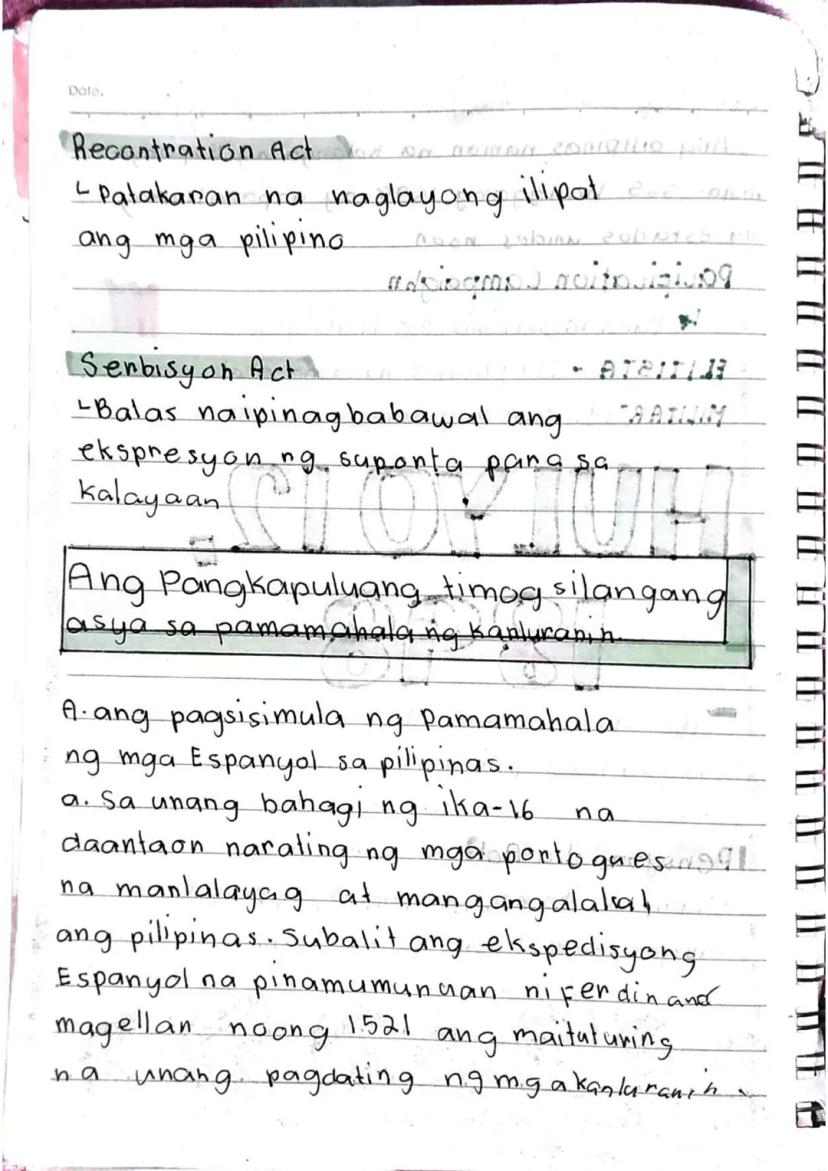 Date.
Recontration Act
ㄴPatakaran na naglayong ilipat
ang mga pilipino
Serbisyon Act
ㄴBalas naipinagbabawal ang
ekspresyon ng suporta para sa
kalayaan
Ang Pangkapuluang timog silangang
asya sa pamamahala ng kanluranin.
A. ang pagsisimula ng Pamamahala
ng mga Espanyol sa pilipinas.
a. Sa unang bahagi ng ika-16 na
daantaon narating ng mga portogues
na manlalayag at mangangalakal
ang pilipinas. Subalit ang ekspedisyong
Espanyol na pinamumunuan ni Ferdinand
magellan noong 1521 ang maituturing
na unang pagdating ng mga kanluranin.